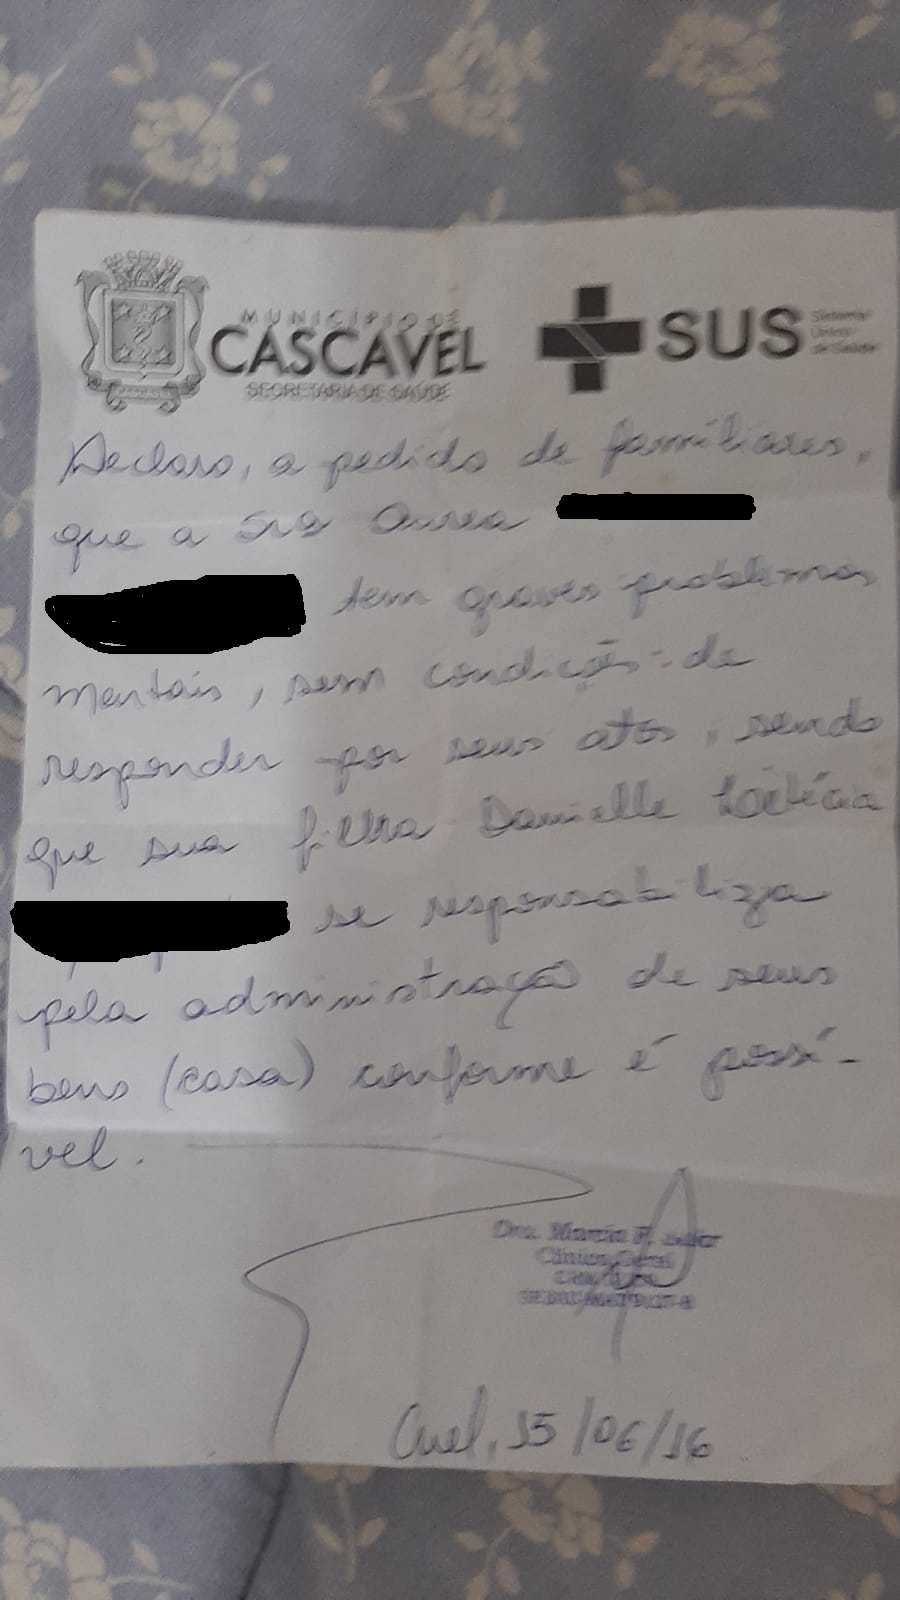 MUNICÍPIO DE
CASCAVEL
SECRETARIA DE SAÚDE
SUS
Sistema
Único
de Saúde
Declaro, a pedido de familiares,
que a Sra Aurea
tem graves problemas
mentais, sem condição de
responder por seus atos, sendo
que sua filha Danielle
se responsabiliza
pela administração de seus
bens (casa) conforme é possí-
vel.
Dra. Marcia F.
Clínica Geral
Cvel, 15/06/16